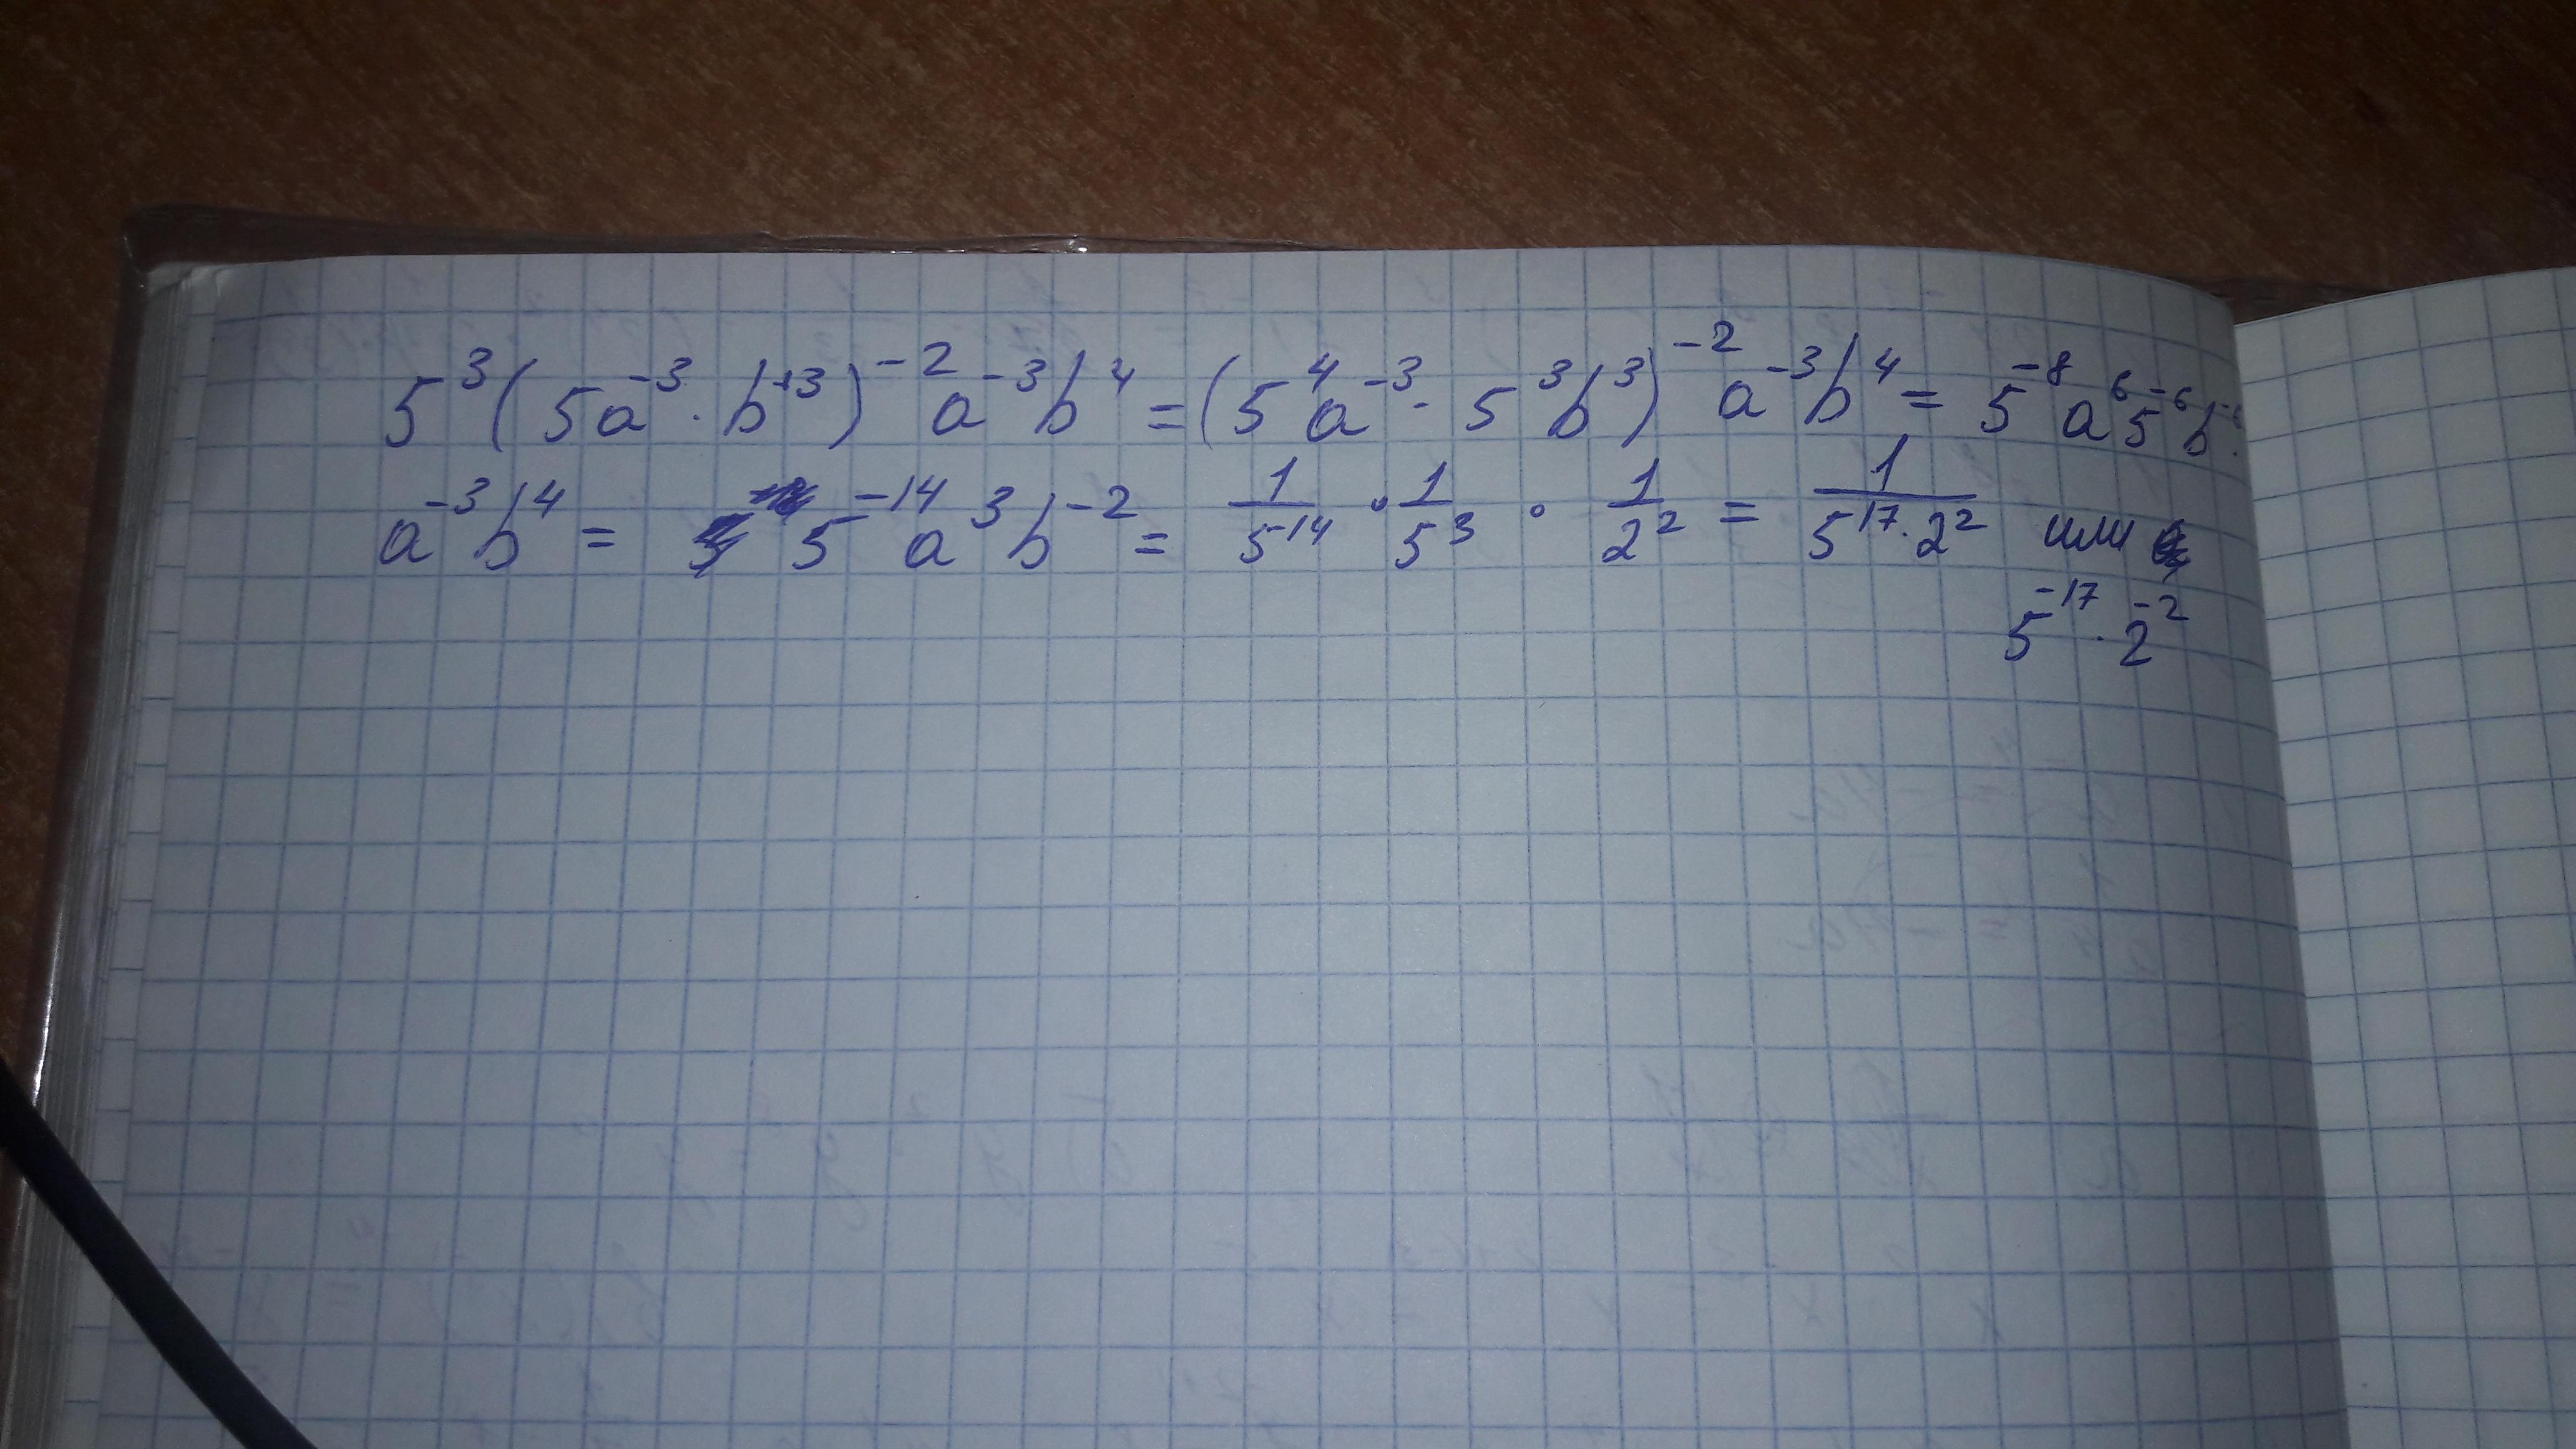 5³(5a⁻³·b⁺³)⁻²a⁻³b⁴=(5⁴a⁻³·5³b³)⁻²a⁻³b⁴=5⁻⁸a⁶5⁻⁶b⁻⁶·
a⁻³b⁴= 5⁻¹⁴a³b⁻²= 1/5¹⁴ · 1/5³ · 1/2² = 1/5¹⁷·2² или
5⁻¹⁷·2⁻²